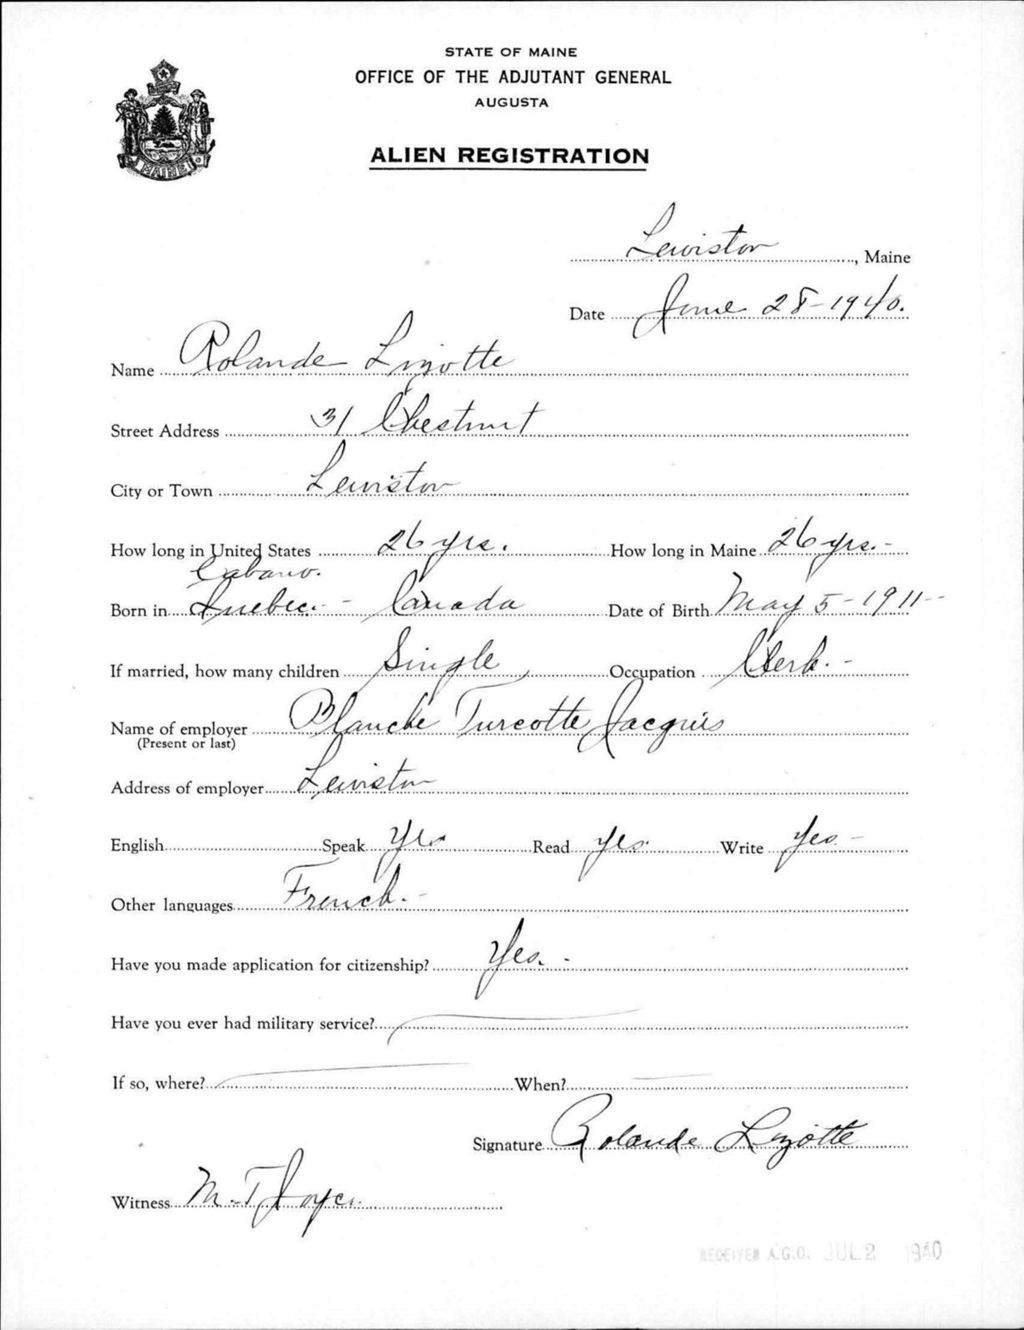 STATE OF MAINE
OFFICE OF THE ADJUTANT GENERAL
AUGUSTA
ALIEN REGISTRATION
MAINE
Lewiston, Maine
Date June 28-1940.
Name Rolande Lizotte
Street Address 31 Chestnut
City or Town Lewiston
How long in United States 26 yrs. How long in Maine 26 yrs.-
Cabano.
Born in Quebec. - Canada Date of Birth May 5-1911-
If married, how many children Single Occupation Clerk.-
Name of employer Blanche Turcotte Jacques
(Present or last)
Address of employer Lewiston
English Speak Yes Read Yes Write Yes-
Other languages French.-
Have you made application for citizenship? Yes. -
Have you ever had military service?
If so, where? When?
Signature Rolande Lizotte
Witness M. T. Joyce
RECEIVED A.G.O. JUL 2 1940